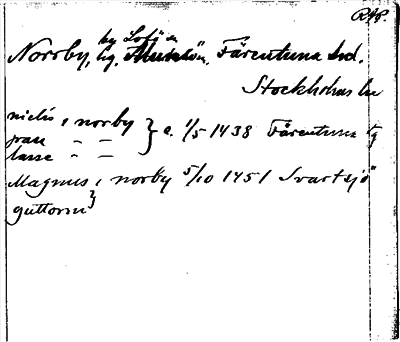 RAP.
Norrby, by Lofö n
lig. Munsön, Färentuna hd.
Stockholms län
nielis i norby } c. 1/5 1438 Färentuna tg
joan " "
lasse " "
Magnus i norby 5/10 1451 Svartsjö
guttorm }